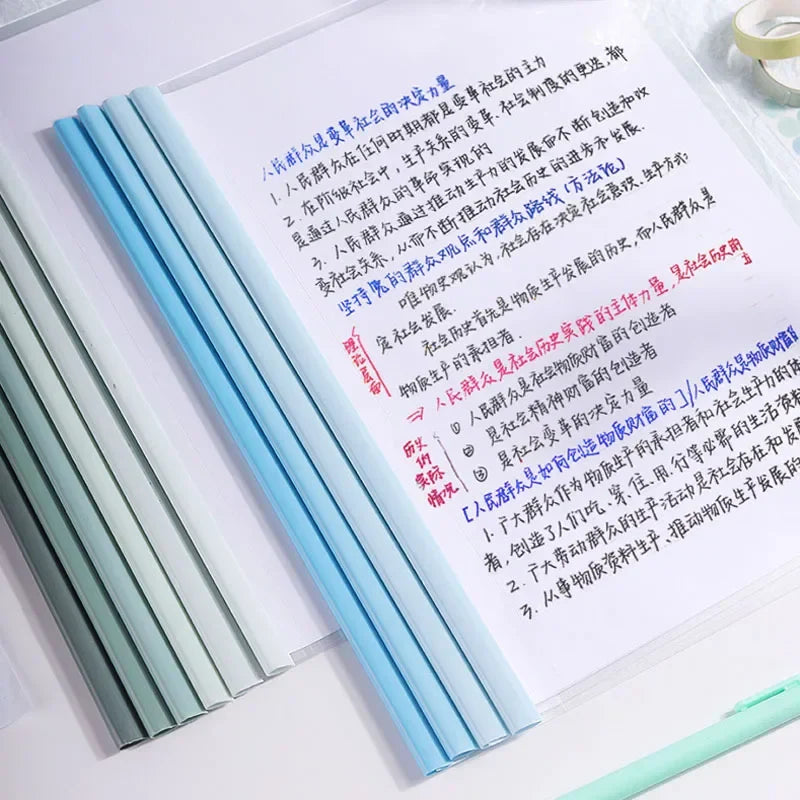 人民群众是变革社会的决定力量
1. 人民群众在任何时期都是变革社会的主力
2. 在阶级社会中,生产关系的变革、社会制度的更迭,都
是通过人民群众的革命实现的
3. 人民群众通过推动生产力的发展而不断创造和改
变社会关系,从而不断推动社会历史的进步和发展.
坚持党的群众观点和群众路线(方法论)
唯物史观认为,社会存在决定社会意识,生产方式
定社会发展.
社会历史首先是物质生产发展的历史,而人民群众是
物质生产的承担者.
理论层面
⇒ 人民群众是社会历史实践的主体力量,是社会历史的
① 人民群众是社会物质财富的创造者
② 是社会精神财富的创造者
③ 是社会变革的决定力量
历史的实际情况
[人民群众是如何创造物质财富的]/人民群众是物质财富的
1. 广大群众作为物质生产的承担者和社会生产力的体
者,创造了人们吃、穿、住、用、行等必需的生活资料
2. 广大劳动群众的生产活动是社会存在和发展
3. 从事物质资料生产、推动物质生产发展的